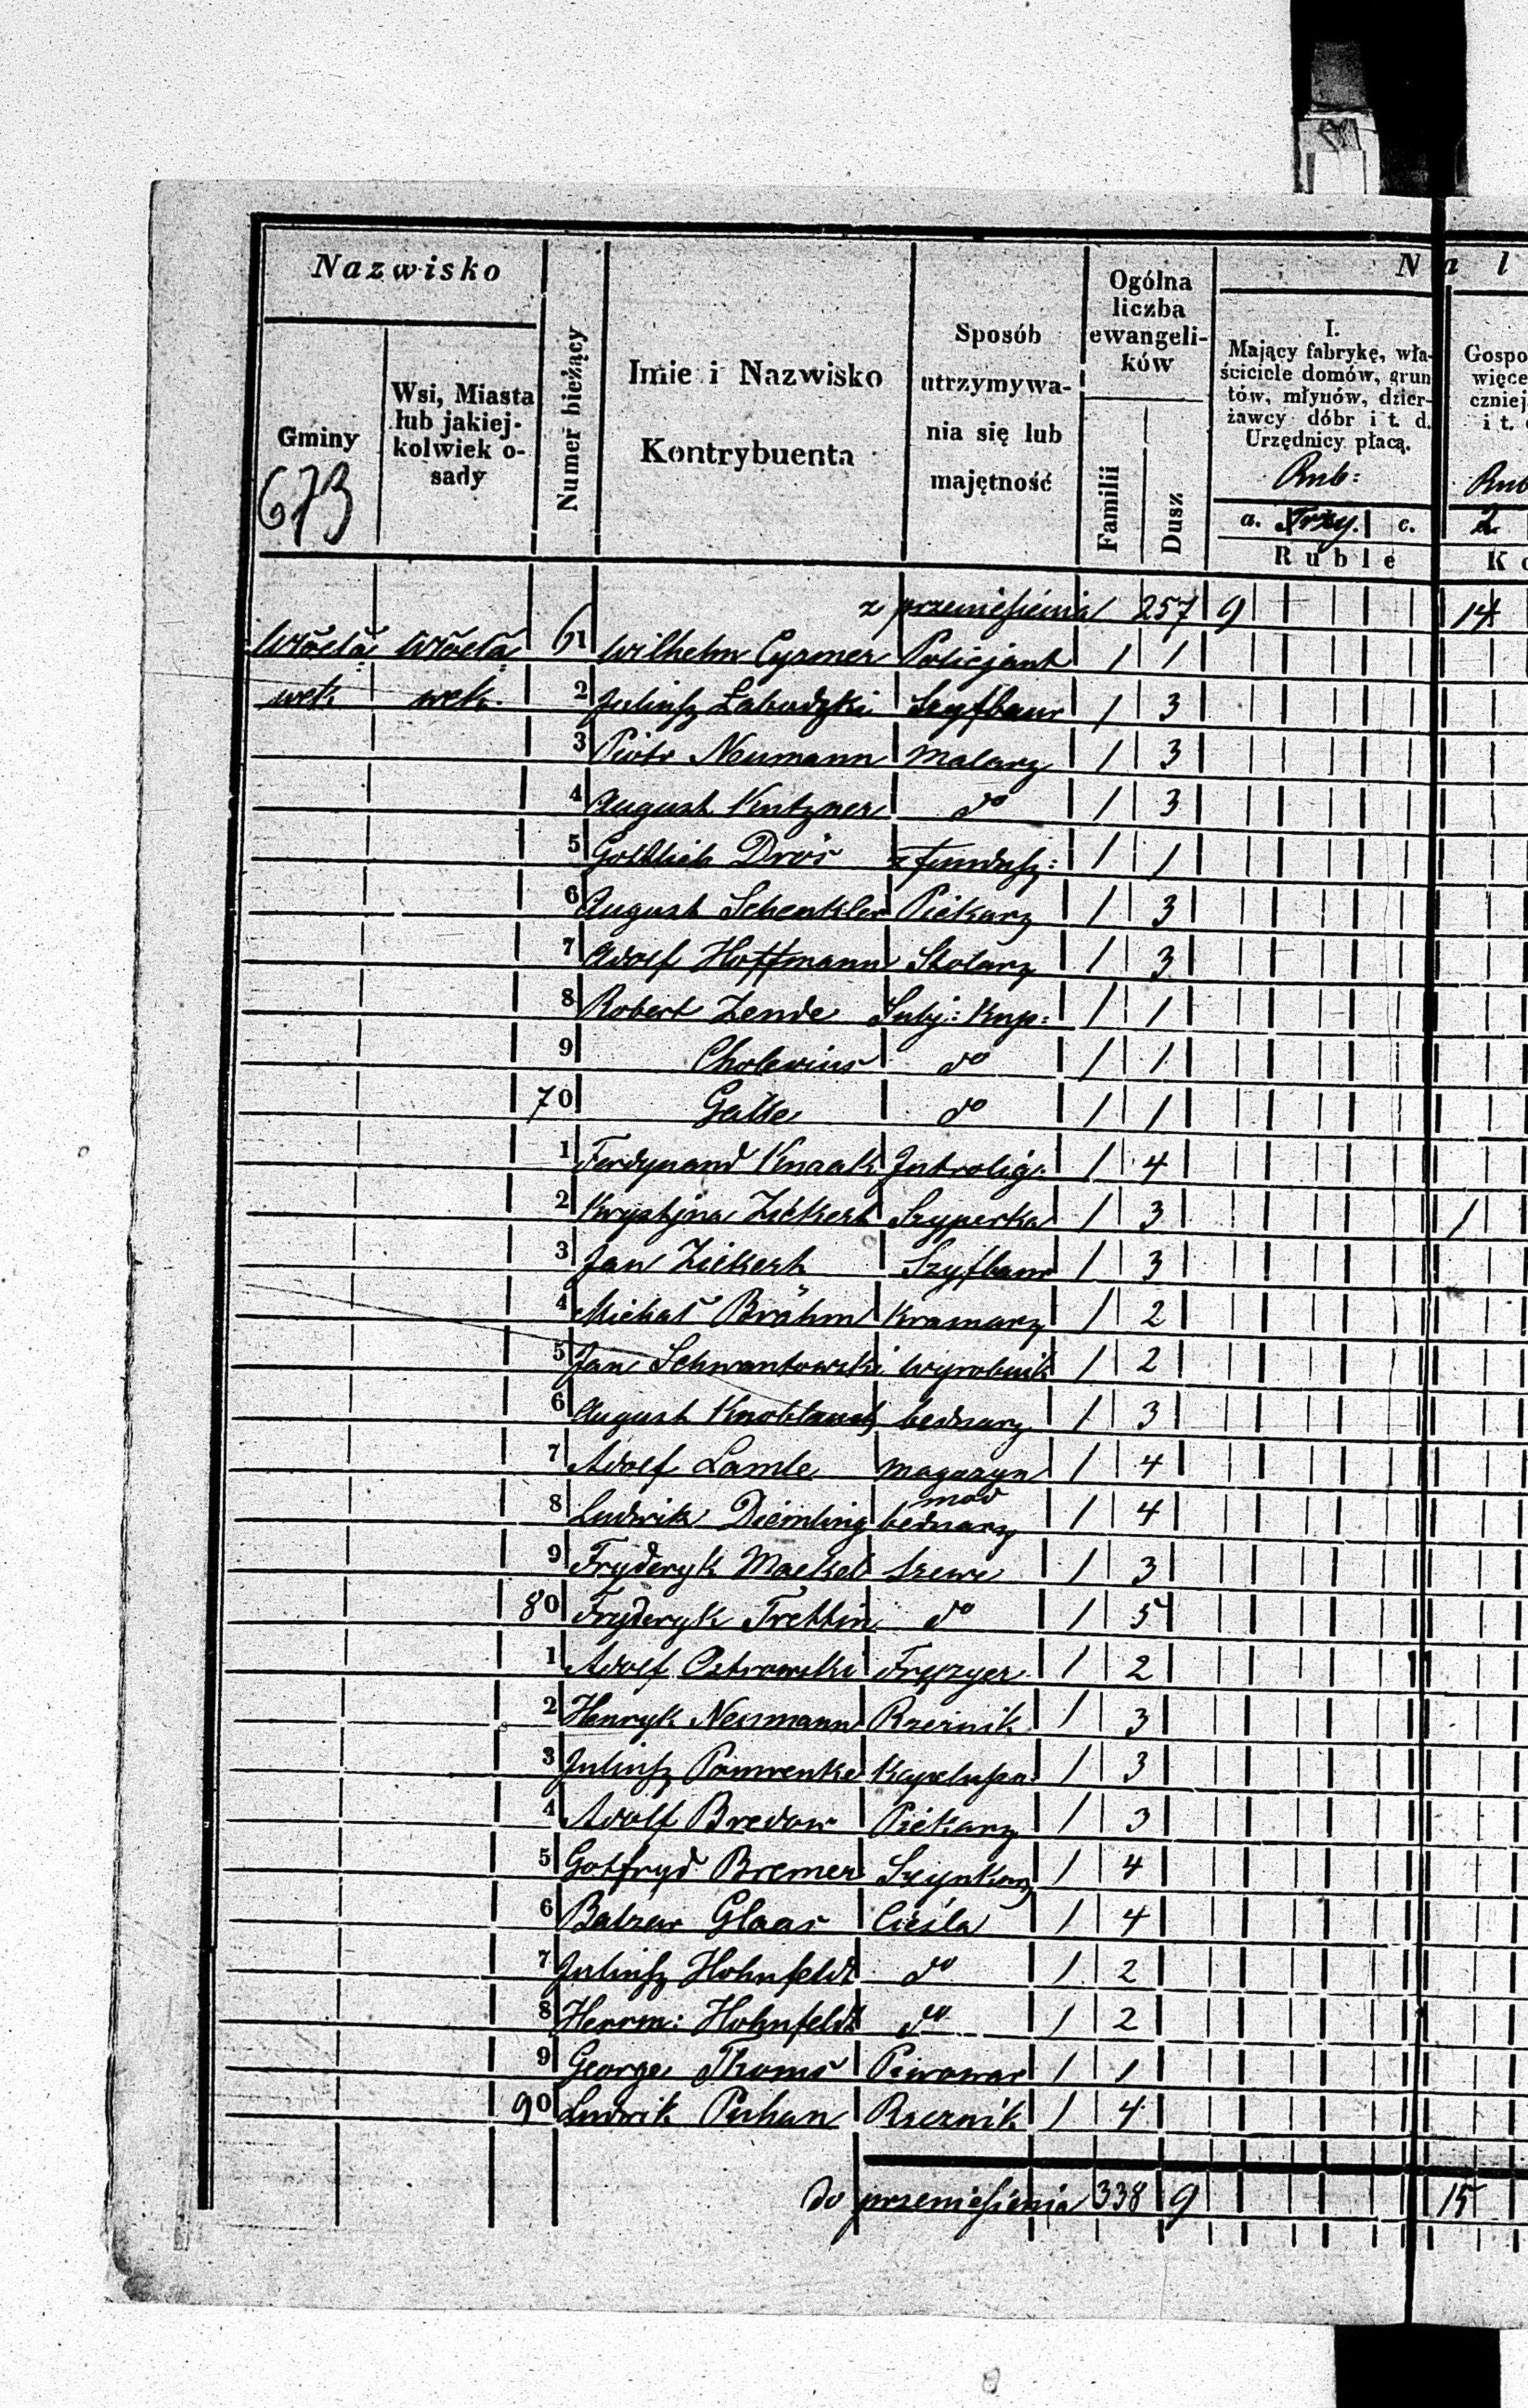 Nazwisko
Gminy
673
Wsi, Miasta
lub jakiej-
kolwiek o-
sady
Numer bieżący
Imie i Nazwisko
Kontrybuenta
Sposób
utrzymywa-
nia się lub
majętność
Ogólna
liczba
ewangeli-
ków
Familii
Dusz
N a l
I.
Mający fabrykę, wła-
ściciele domów, grun
tów, młynów, dzier-
żawcy dóbr i t. d.
Urzędnicy płacą.
Rub:
a. Trzy. c.
Ruble
Gospo
więce
czniej
i t.
Rub
2
K
z przeniesienia 257 9 14
Włocła Włocła 61 Wilhelm Cyrmer Policjant 1 1
wek wek. 2 Juliusz Łabudzki Szyfbaur 1 3
3 Piotr Neumann Malarz 1 3
4 August Kutzner do 1 3
5 Gottlieb Dröś z fundusz: 1 1
6 August Schenkler Piekarz 1 3
7 Adolf Hoffmann Stolarz 1 3
8 Robert Zende Subj: Kup: 1 1
9 Cholevius do 1 1
70 Galle do 1 1
1 Ferdynand Knaak Introlig. 1 4
2 Krystyna Ziekert Szyperka 1 3 1
3 Jan Ziekert Szyfbaur 1 3
4 Michał Bröhm Kramarz 1 2
5 Jan Schwantowski wyrobnik 1 2
6 August Knoblauch bednarz 1 3
7 Adolf Lamle magazyn 1 4
mód
8 Ludwik Diemling bednarz 1 4
9 Fryderyk Maekel szewc 1 3
80 Fryderyk Trettin do 1 5
1 Adolf Ostrowski Fryzyer 1 2
2 Henryk Neumann Rzeźnik 1 3
3 Juliusz Pomrenke Kapelusz: 1 3
4 Adolf Bredow Piekarz 1 3
5 Gotfryd Bremer Szynkarz 1 4
6 Balzer Glaas Cieśla 1 4
7 Juliusz Hohnfeldt do 1 2
8 Herrm: Hohnfeldt do 1 2
9 George Thoms Piwowar 1 1
90 Ludwik Puhan Rzeźnik 1 4
do przeniesienia 338 9 15